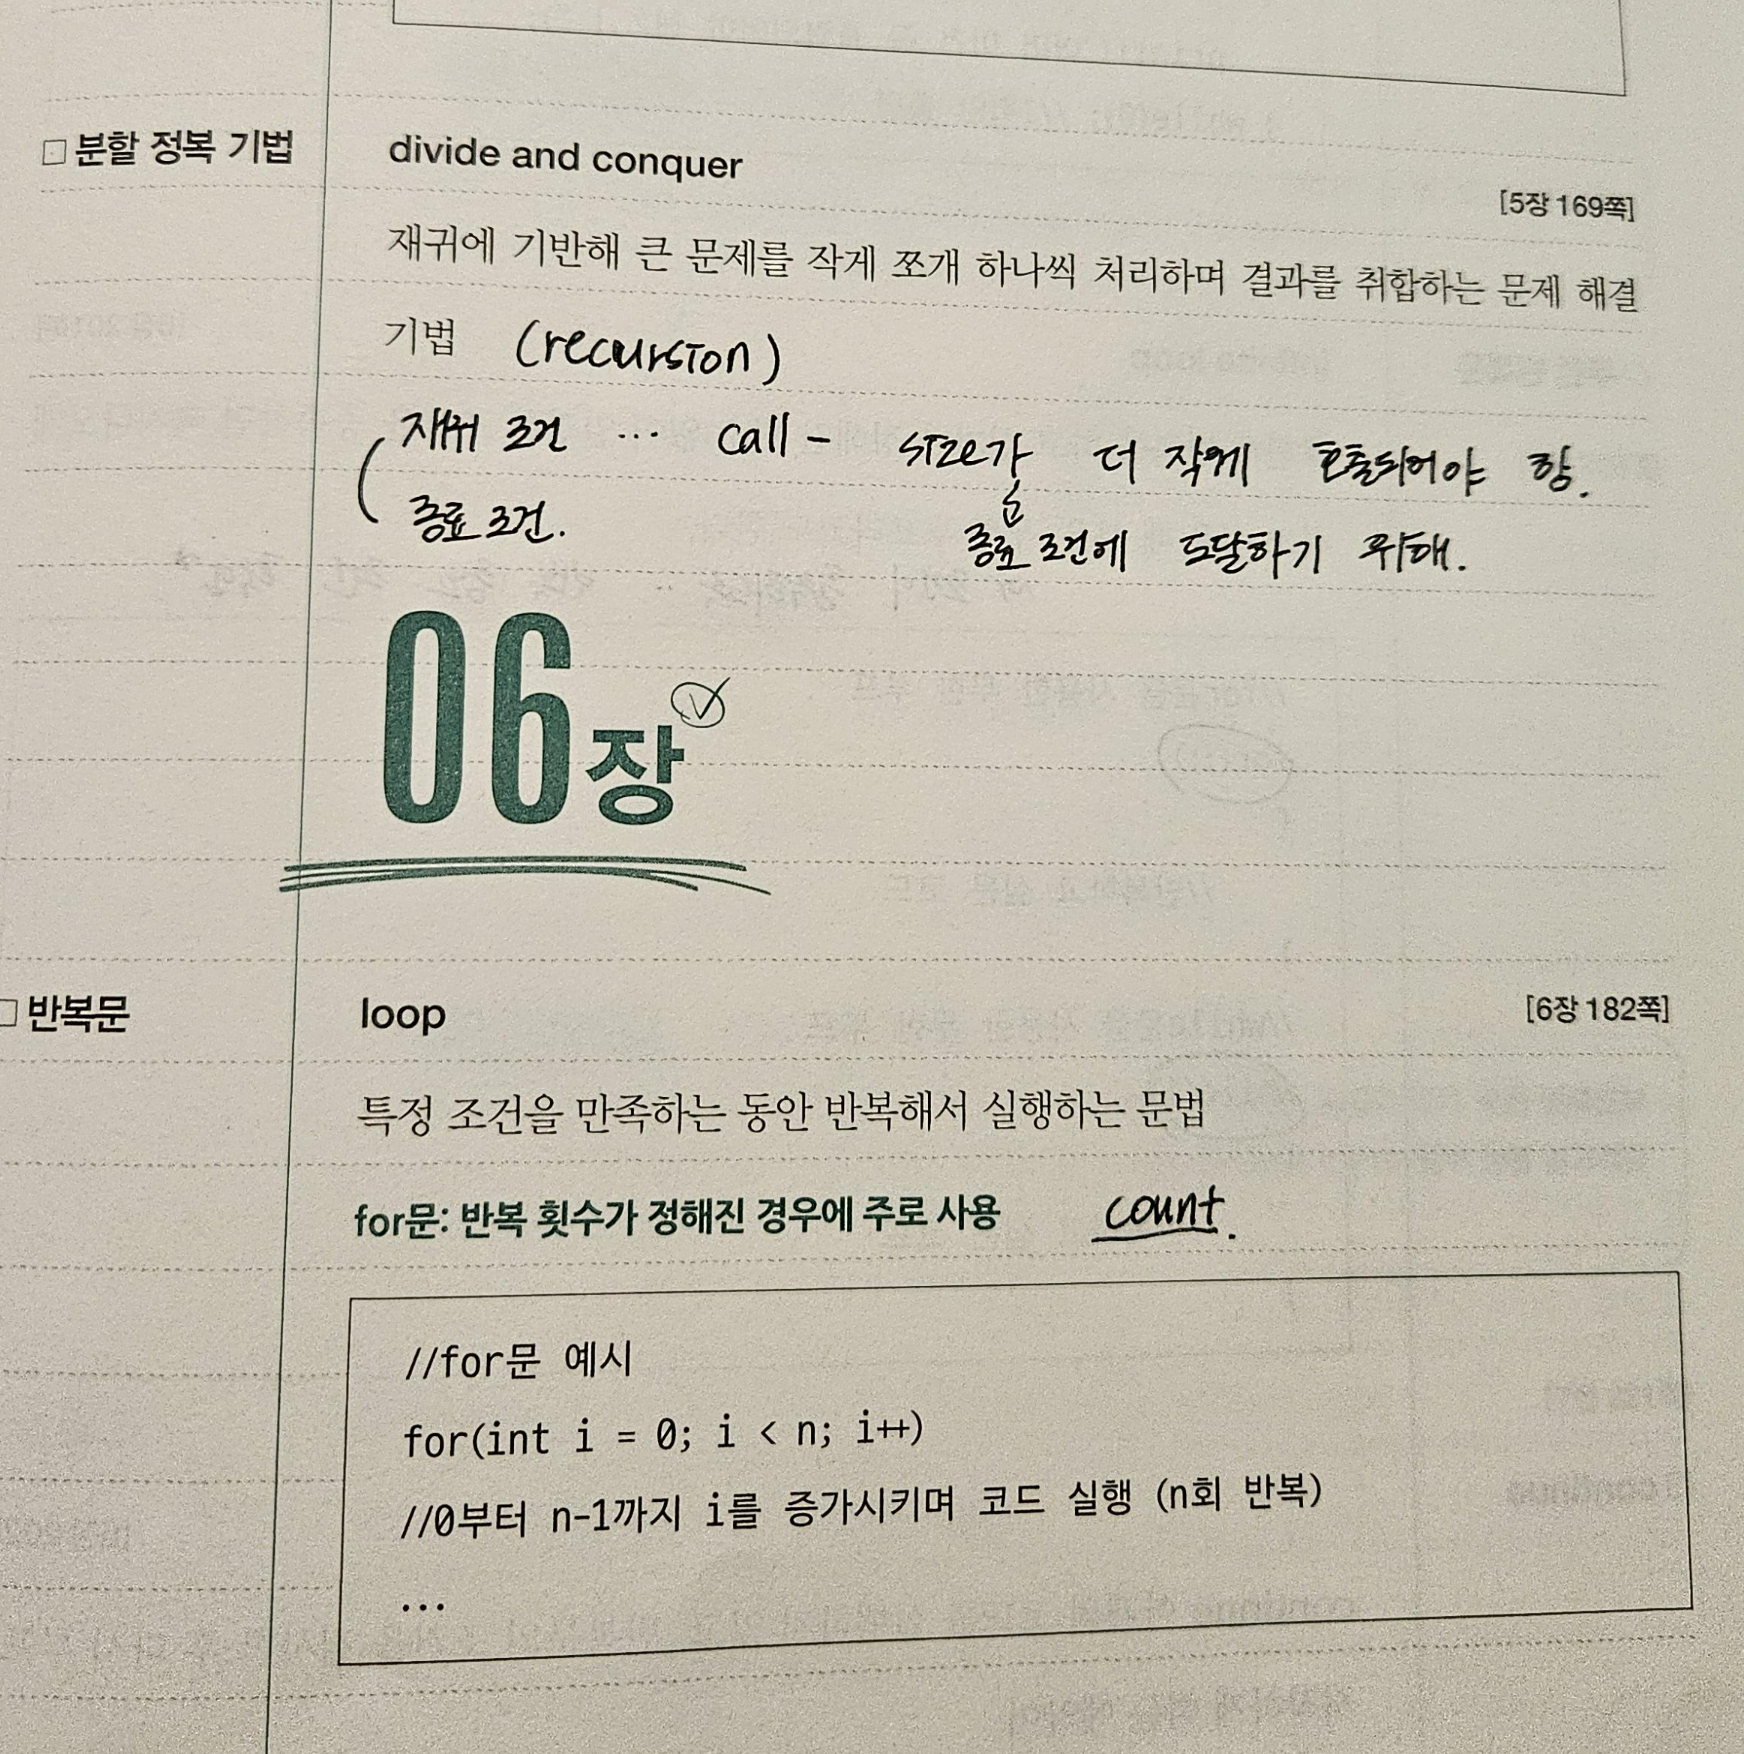 □ 분할 정복 기법 divide and conquer
[5장 169쪽]
재귀에 기반해 큰 문제를 작게 쪼개 하나씩 처리하며 결과를 취합하는 문제 해결
기법 (recursion)
재귀 조건 ... call - size가 더 작게 호출되어야 함.
종료 조건.
종료 조건에 도달하기 위해.
06장
□ 반복문 loop [6장 182쪽]
특정 조건을 만족하는 동안 반복해서 실행하는 문법
for문: 반복 횟수가 정해진 경우에 주로 사용 count.
//for문 예시
for(int i = 0; i < n; i++)
//0부터 n-1까지 i를 증가시키며 코드 실행 (n회 반복)
...